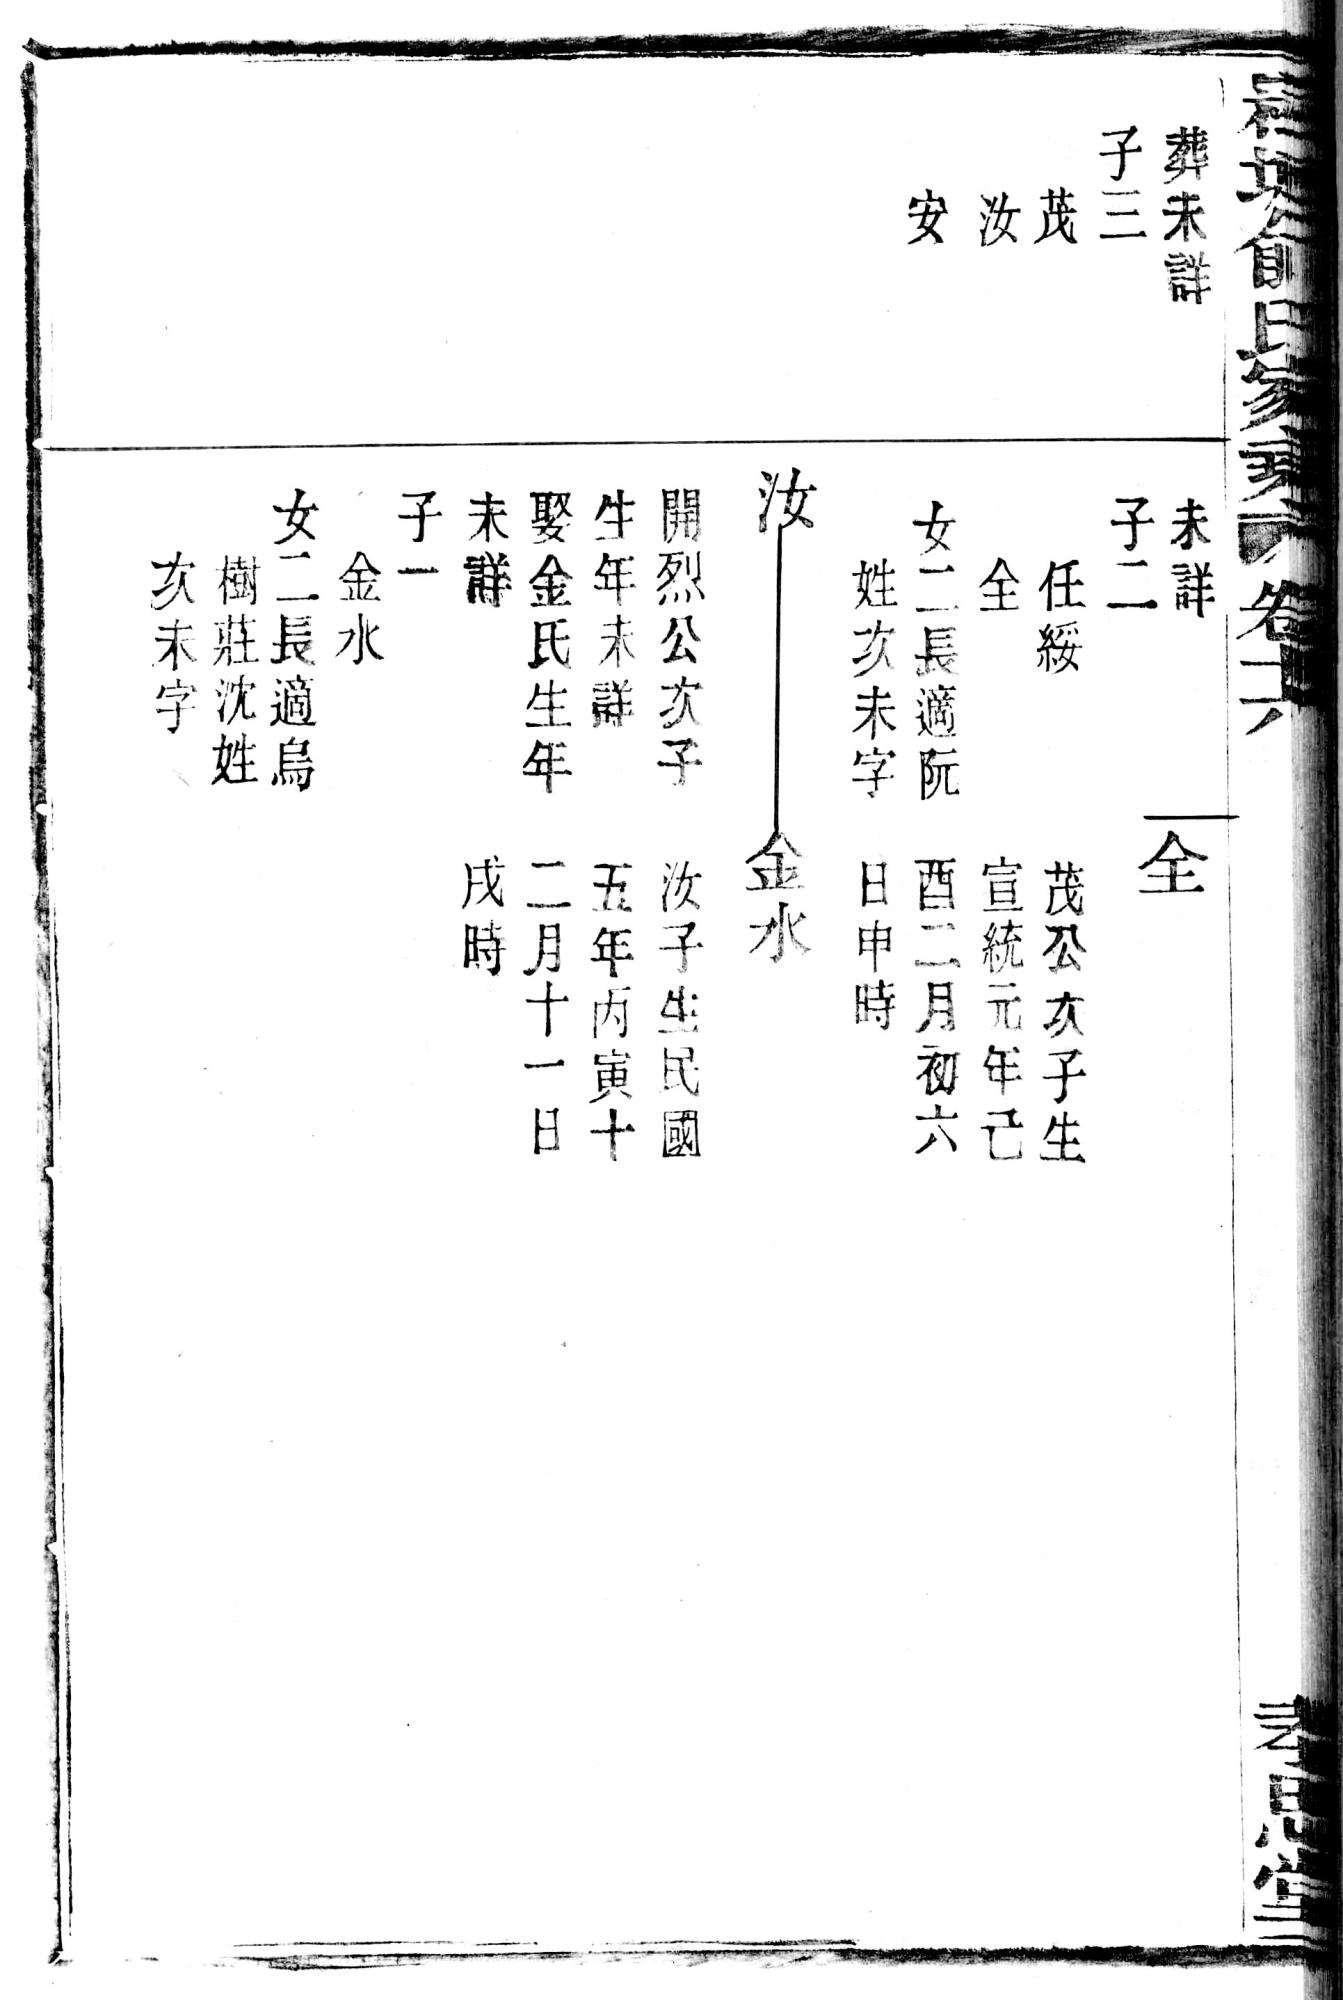 俞氏家乘 卷十六
孝思堂
葬未詳
子三
茂
汝
安
未詳
子二
任綏
全
女二長適阮
姓次未字
汝
開烈公次子
生年未詳
娶金氏生年
未詳
子一
金水
女二長適烏
樹莊沈姓
次未字
全
茂公次子生
宣統元年己
酉二月初六
日申時
金水
汝子生民國
五年丙寅十
二月十一日
戌時